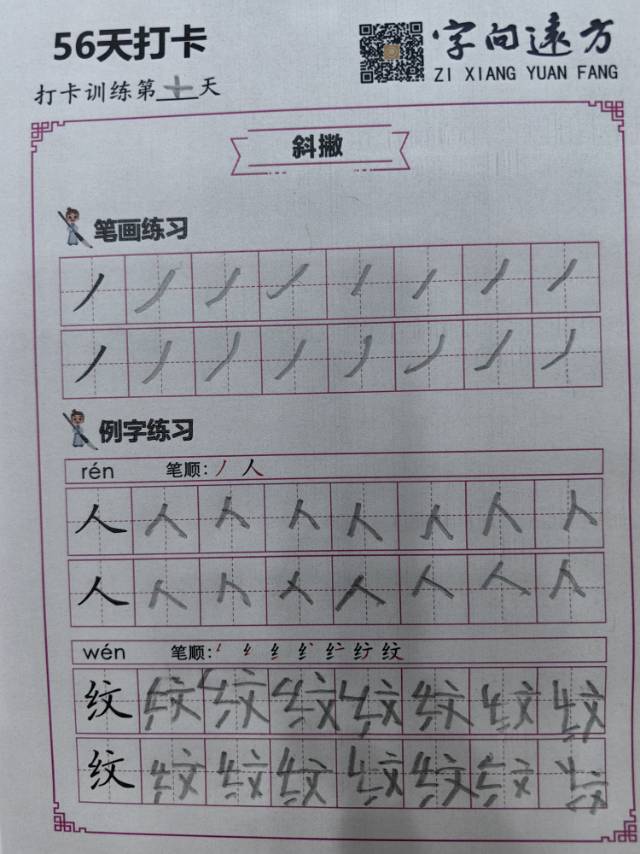 56天打卡
字向遠方
ZI XIANG YUAN FANG
打卡训练第十天
斜撇
笔画练习
丿丿丿丿丿丿丿丿
丿丿丿丿丿丿丿丿
例字练习
rén 笔顺: 丿 人
人人人人人人人人
人人人人人人人人
wén 笔顺: 纹
纹纹纹纹纹纹纹纹
纹纹纹纹纹纹纹纹